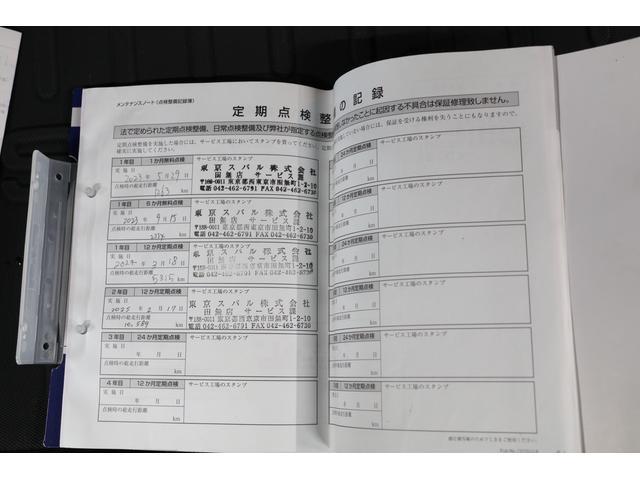 メンテナンスノート(点検整備記録簿)
定期点検整
の記録
法で定められた定期点検整備、日常点検整備及び弊社が指定する点検整
なかったことに起因する不具合は保証修理致しません。
定期点検整備を実施した場合には、サービス工場においてスタンプを
確実に実施してください。
していない場合には、保証を受ける権利を失うことにもなりますので、
1年目 1か月無料点検 サービス工場のスタンプ
実施日
2023年5月29日
点検時の総走行距離
1263 km
東京スバル株式会社
田無店 サービス課
〒188-0011 東京都西東京市田無町1-2-10
電話 042-462-6791 FAX 042-462-6763
1年目 6か月無料点検 サービス工場のスタンプ
実施日
2023年9月15日
点検時の総走行距離
km
東京スバル株式会社
田無店 サービス課
〒188-0011 東京都西東京市田無町1-2-10
電話 042-462-6791 FAX 042-462-6763
1年目 12か月定期点検 サービス工場のスタンプ
実施日
2024年2月18日
点検時の総走行距離
5315 km
東京スバル株式会社
田無店 サービス課
〒188-0011 東京都西東京市田無町1-2-10
電話 042-462-6791 FAX 042-462-6763
2年目 12か月定期点検 サービス工場のスタンプ
実施日
2025年2月17日
点検時の総走行距離
10,589 km
東京スバル株式会社
田無店 サービス課
〒188-0011 東京都西東京市田無町1-2-10
電話 042-462-6791 FAX 042-462-6763
3年目 24か月定期点検 サービス工場のスタンプ
実施日
年 月 日
点検時の総走行距離
km
4年目 12か月定期点検 サービス工場のスタンプ
実施日
年 月 日
点検時の総走行距離
km
24か月定期点検 サービス工場のスタンプ
年 月 日
km
12か月定期点検 サービス工場のスタンプ
年 月 日
km
24か月定期点検 サービス工場のスタンプ
年 月 日
km
12か月定期点検 サービス工場のスタンプ
年 月 日
km
24か月定期点検 サービス工場のスタンプ
年 月 日
km
12か月定期点検 サービス工場のスタンプ
年 月 日
km